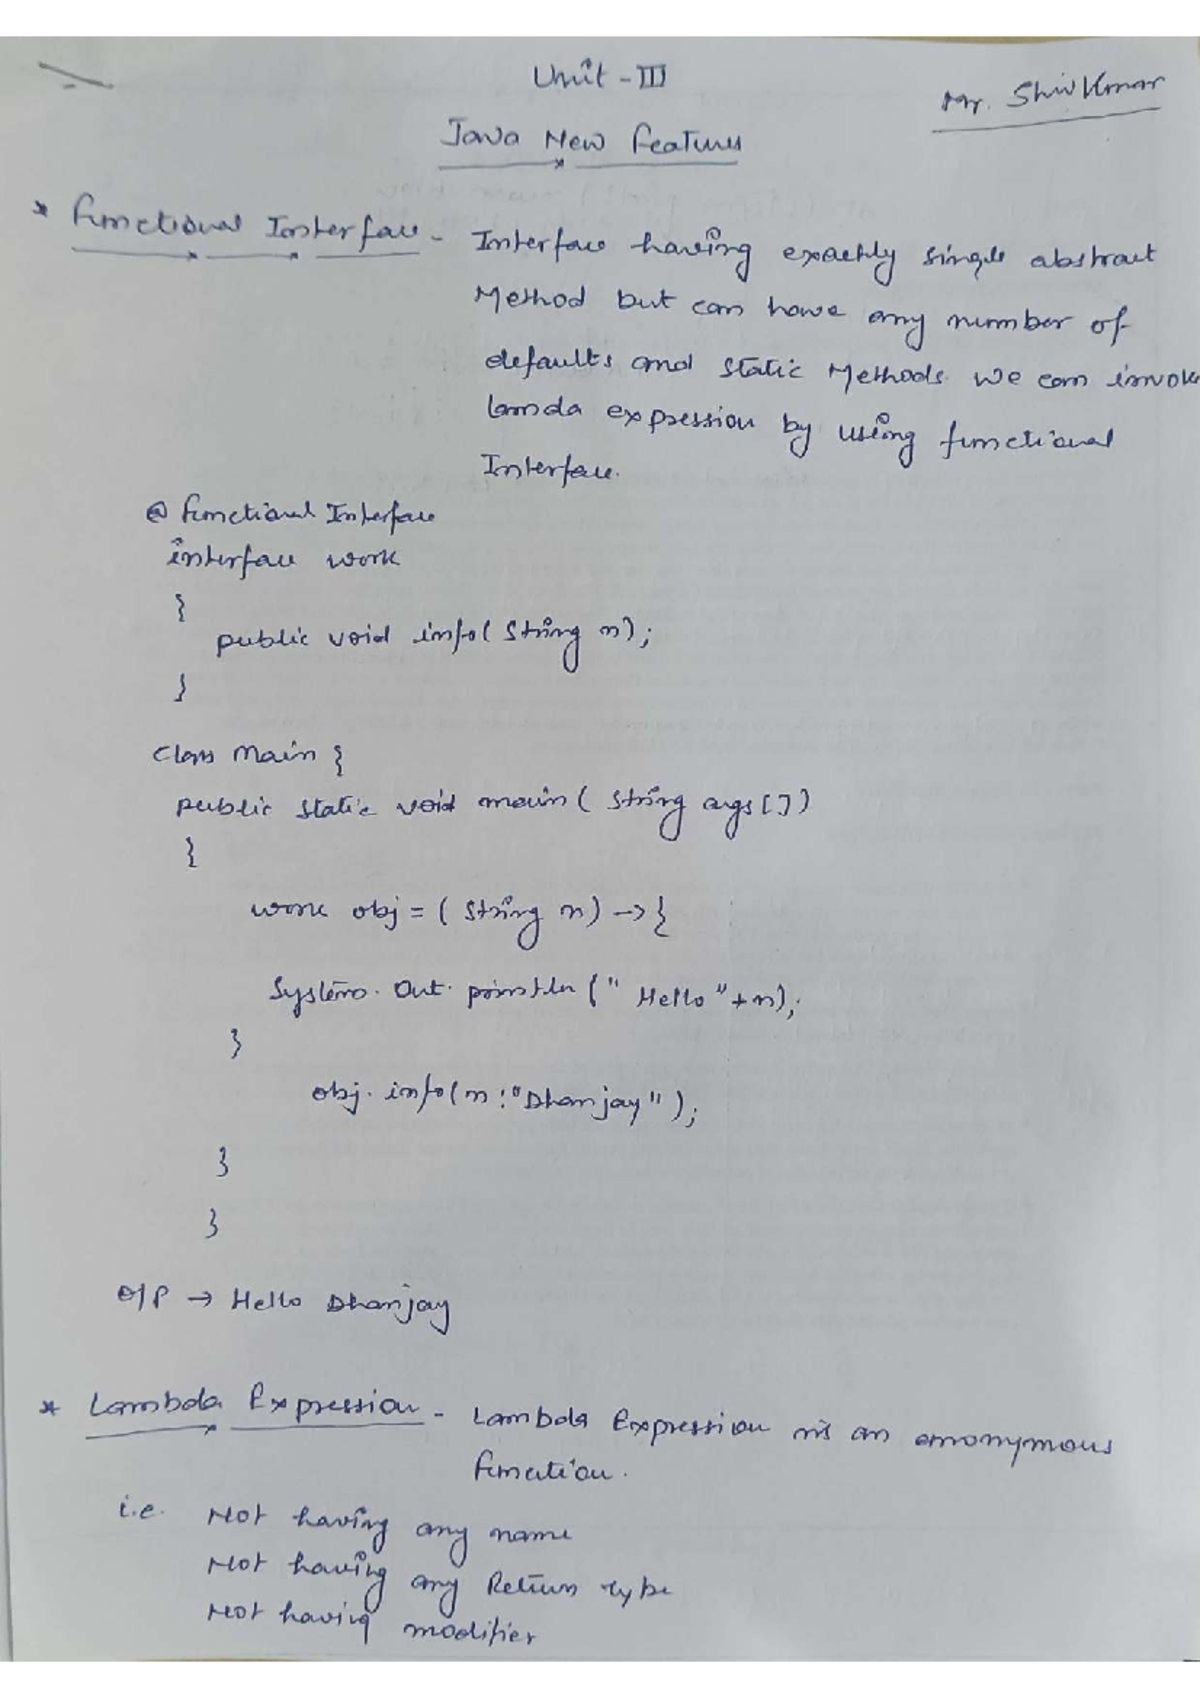 Unit - III
Mr. ShivKumar
Java New Features
* Functional Interface - Interface having exactly single abstract
Method but can have any number of
defaults and static Methods. We can invok
lamda expression by using functional
Interface.
@ Functional Interface
interface work
{
public void info( String n);
}
Class Main {
public static void main( String args[])
{
work obj = ( String n) -> {
System. Out. println (" Hello"+n);
}
obj. info(n:"Dhanjay");
}
}
O/P → Hello Dhanjay
* Lambda Expression - Lambda Expression is an anonymous
function.
i.e. Not having any name
Not having any Return type
Not having modifier